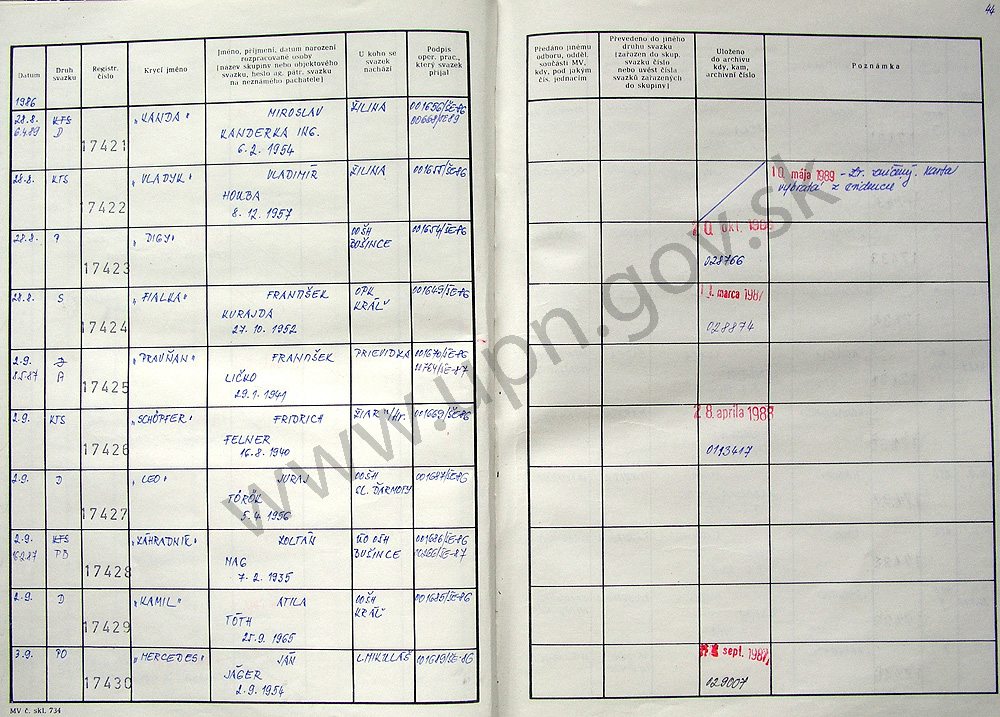 44
Datum
Druh svazku
Registr. číslo
Krycí jméno
Jméno, příjmení, datum narození
rozpracované osoby
[název skupiny nebo objektového
svazku, heslo ag. pátr. svazku
na neznámého pachatele]
U koho se
svazek
nachází
Podpis
oper. prac.,
který svazek
přijal
Předáno jinému
odboru, odděl.
součásti MV,
kdy, pod jakým
čís. jednacím
Převedeno do jiného
druhu svazku
[zařazen do skup.
svazku číslo
nebo uvést čísla
svazků zařazených
do skupiny]
Uloženo
do archivu
kdy, kam,
archivní číslo
Poznámka
1986
28.8. KTS "KANDA" MIROSLAV ŽILINA 001656/ŠE-86
6.4.89 D KANDERKA ING.
17421 6.2.1954
28.8. KTS "VLADYK" VLADIMÍR ŽILINA 001655/ŠE-86
HOUBA
17422 8.12.1957
10. mája 1989 - zničený. Karta
vybratá z evidencie
28.8. "DIGY" OOŠH 001654/ŠE-86
BUŠINCE
17423
okt. 1986
028766
28.8. S "FIALKA" FRANTIŠEK OPK 001649/ŠE-86
KURAJDA KRÁĽ
17424 27.10.1952
marca 1987
028874
2.9. "PRAVŇAN" FRANTIŠEK PRIEVIDZA 001670/ŠE-86
8.5.87 A LIČKO
17425 29.1.1941
2.9. KTS "SCHÖPFER" FRIDRICH ŽIAR n/Hr. 001669/ŠE-86
FELNER
17426 16.8.1940
28. apríla 1988
0113417
2.9. D "LEO" JURAJ OOŠH 001687/ŠE-86
TÖRÖK SL. ĎARMOTY
17427 5.4.1956
2.9. KTS "ZÁHRADNÍK" ZOLTÁN OOŠH 001686/ŠE-86
16.2.87 PD MAG BUŠINCE
17428 7.2.1935
2.9. D "KAMIL" ATILA OOŠH 001685/ŠE-86
TÓTH KRÁĽ
17429 25.9.1965
3.9. PO "MERCEDES" JÁN L. MIKULÁŠ 001689/ŠE-86
JÄGER
17430 2.9.1954
sept. 1987
029007
MV č. skl. 734
www.upn.gov.sk